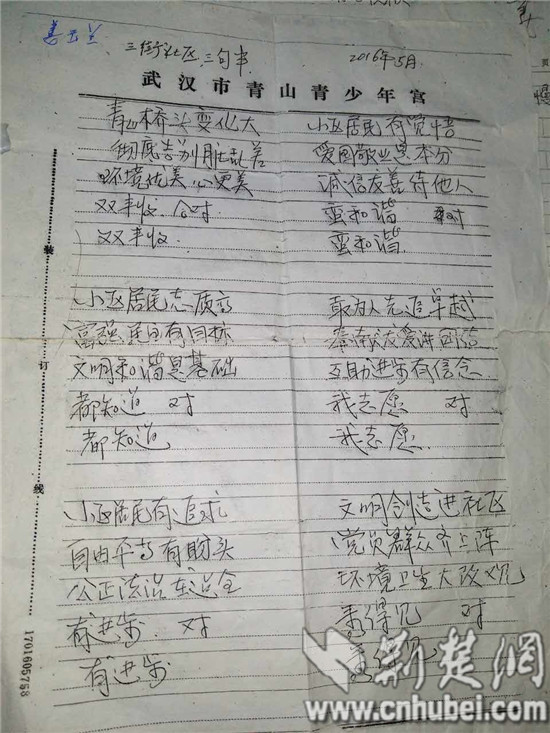 姜玉兰
三街社区 三句半
2016年5月
武汉市青山青少年宫
青山桥头变化大
彻底告别脏乱差
环境优美心更美
双丰收 合对
双丰收
小区居民志质高
富强民主有目标
文明和谐是基础
都知道 对
都知道
小区居民有追求
自由平等有盼头
公正法治
有进步 对
有进步
小区居民有觉悟
爱国敬业是本分
诚信友善待他人
蛮和谐 对
蛮和谐
敢为人先追卓越
奉献友爱
互助进步有信念
我志愿 对
我志愿
文明创造进社区
党员群众齐上阵
环境卫生大改观
看得见 对
看得见
装
订
线
1701605758
新楚网
www.cnhubei.com